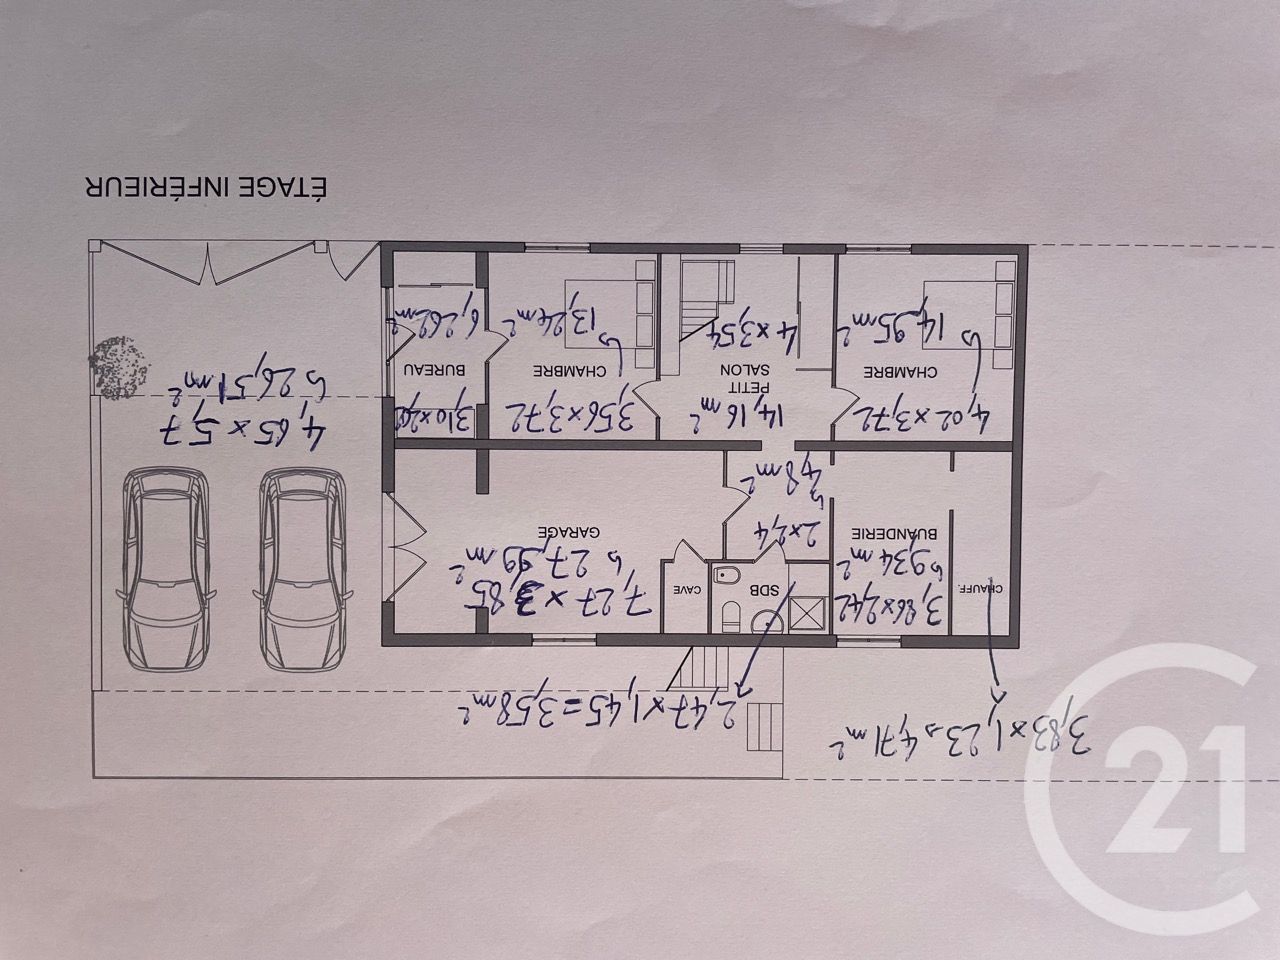 3,83 x 1,23 = 4,71 m²
2,47 x 1,45 = 3,58 m²
CHAUFF.
3,86 x 2,42
↳ 9,34 m²
BUANDERIE
SDB
2 x 2,4
↳ 4,8 m²
CAVE
7,27 x 3,85
↳ 27,99 m²
GARAGE
4,02 x 3,72
CHAMBRE
↳ 14,95 m²
14,16 m²
PETIT
SALON
4 x 3,54
3,56 x 3,72
CHAMBRE
↳ 13,24 m²
BUREAU
6,262 m²
4,65 x 5,7
↳ 26,51 m²
ÉTAGE INFÉRIEUR
C21